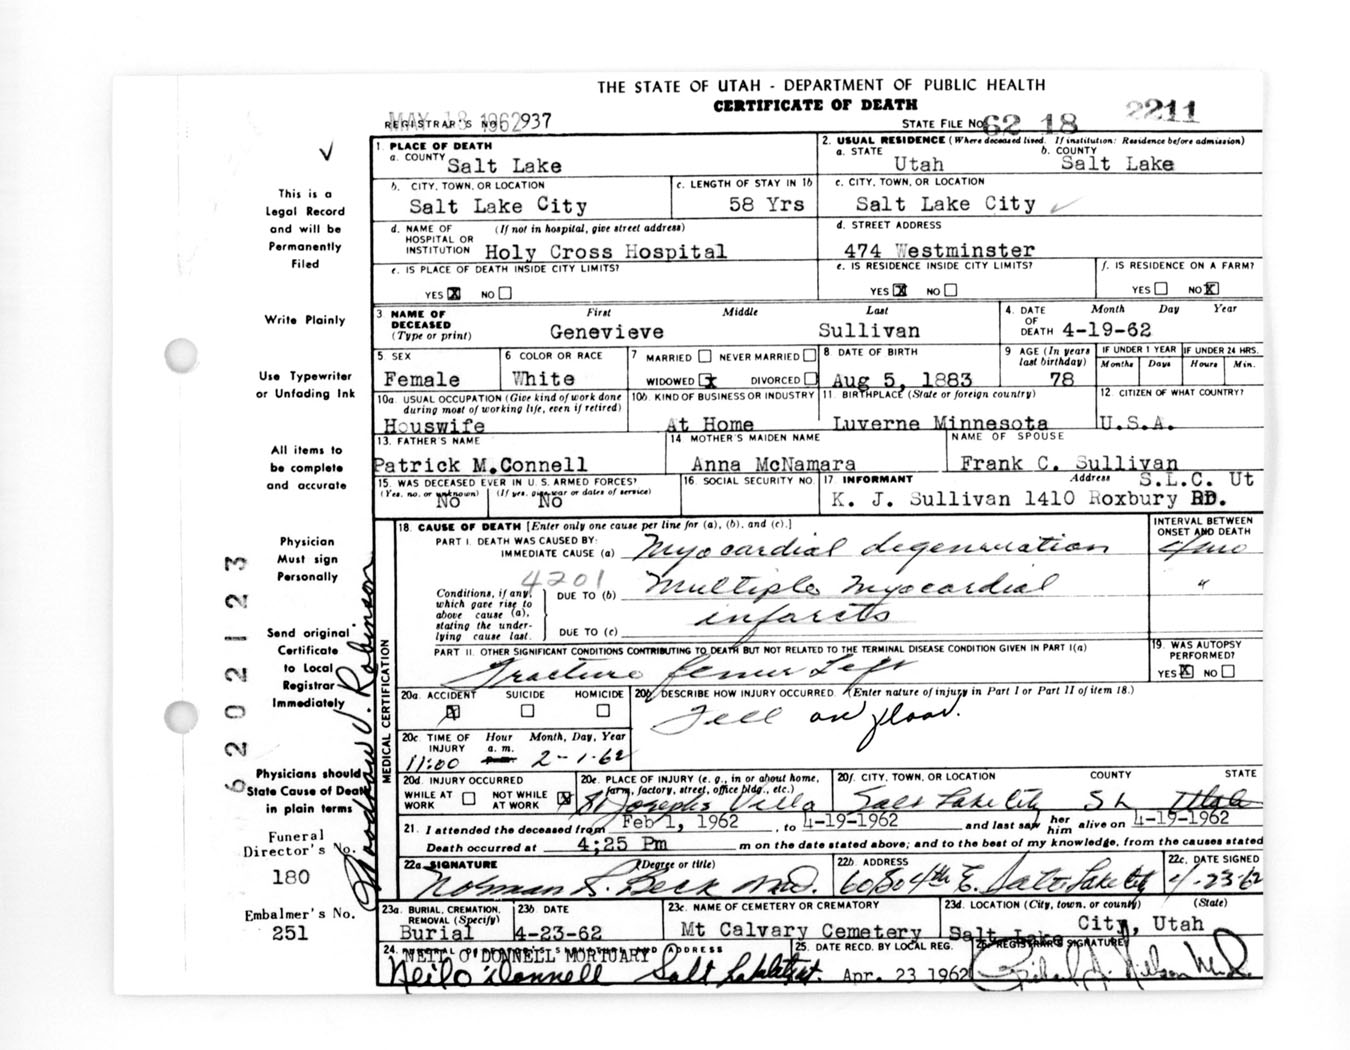 THE STATE OF UTAH - DEPARTMENT OF PUBLIC HEALTH
CERTIFICATE OF DEATH
MAY 18 1962
REGISTRAR'S NO. 937
STATE FILE NO. 62 18 2211
1. PLACE OF DEATH
a. COUNTY Salt Lake
2. USUAL RESIDENCE (Where deceased lived. If institution: Residence before admission)
a. STATE Utah b. COUNTY Salt Lake
b. CITY, TOWN, OR LOCATION Salt Lake City
c. LENGTH OF STAY IN 1b 58 Yrs
c. CITY, TOWN, OR LOCATION Salt Lake City
d. NAME OF HOSPITAL OR INSTITUTION (If not in hospital, give street address) Holy Cross Hospital
d. STREET ADDRESS 474 Westminster
e. IS PLACE OF DEATH INSIDE CITY LIMITS?
YES X NO
e. IS RESIDENCE INSIDE CITY LIMITS?
YES X NO
f. IS RESIDENCE ON A FARM?
YES NO X
3 NAME OF DECEASED (Type or print) First Middle Last
Genevieve Sullivan
4. DATE OF DEATH Month Day Year
4-19-62
5. SEX Female
6 COLOR OR RACE White
7 MARRIED NEVER MARRIED
WIDOWED X DIVORCED
8 DATE OF BIRTH Aug 5, 1883
9 AGE (In years last birthday) 78
IF UNDER 1 YEAR Months Days
IF UNDER 24 HRS. Hours Min.
10a. USUAL OCCUPATION (Give kind of work done during most of working life, even if retired)
Houswife
10b. KIND OF BUSINESS OR INDUSTRY
At Home
11. BIRTHPLACE (State or foreign country)
Luverne Minnesota
12. CITIZEN OF WHAT COUNTRY?
U.S.A.
13. FATHER'S NAME
Patrick M.Connell
14 MOTHER'S MAIDEN NAME
Anna McNamara
NAME OF SPOUSE
Frank C. Sullivan
15. WAS DECEASED EVER IN U.S. ARMED FORCES?
(Yes, no, or unknown) No (If yes, give war or dates of service) No
16. SOCIAL SECURITY NO.
17 INFORMANT Address S.L.C. Ut
K. J. Sullivan 1410 Roxbury RD.
MEDICAL CERTIFICATION
18. CAUSE OF DEATH [Enter only one cause per line for (a), (b), and (c).]
INTERVAL BETWEEN ONSET AND DEATH
PART I. DEATH WAS CAUSED BY:
IMMEDIATE CAUSE (a) Myocardial degeneration
4201
Conditions, if any, which gave rise to above cause (a), stating the underlying cause last.
DUE TO (b) Multiple Myocardial "
infarcts
DUE TO (c)
PART II. OTHER SIGNIFICANT CONDITIONS CONTRIBUTING TO DEATH BUT NOT RELATED TO THE TERMINAL DISEASE CONDITION GIVEN IN PART I(a)
Fracture femur Left
19. WAS AUTOPSY PERFORMED?
YES X NO
20a. ACCIDENT X SUICIDE HOMICIDE
20b. DESCRIBE HOW INJURY OCCURRED. (Enter nature of injury in Part I or Part II of item 18.)
Fell on floor.
20c. TIME OF INJURY Hour a. m. Month, Day, Year
11:00 2-1-62
20d. INJURY OCCURRED
WHILE AT WORK NOT WHILE AT WORK X
20e. PLACE OF INJURY (e. g., in or about home, farm, factory, street, office bldg., etc.)
St Josephs Villa
20f. CITY, TOWN, OR LOCATION COUNTY STATE
Salt Lake City S L Utah
21. I attended the deceased from Feb 1, 1962, to 4-19-1962 and last saw her him alive on 4-19-1962
Death occurred at 4;25 Pm m on the date stated above; and to the best of my knowledge, from the causes stated
22a. SIGNATURE (Degree or title)
Norman S. Beck MD.
22b. ADDRESS
Salt Lake City
22c. DATE SIGNED
4-23-62
23a. BURIAL, CREMATION, REMOVAL (Specify)
Burial
23b. DATE
4-23-62
23c. NAME OF CEMETERY OR CREMATORY
Mt Calvary Cemetery
23d. LOCATION (City, town, or county) (State)
Salt Lake City, Utah
24. ADDRESS
NEIL O'DONNELL MORTUARY
Neil O'Donnell Salt Lake
25. DATE RECD. BY LOCAL REG.
Apr. 23 1962
26. REGISTRAR'S SIGNATURE
This is a
Legal Record
and will be
Permanently
Filed
Write Plainly
Use Typewriter
or Unfading Ink
All items to
be complete
and accurate
Physician
Must sign
Personally
Send original
Certificate
to Local
Registrar
Immediately
Physicians should
State Cause of Death
in plain terms
Funeral
Director's No.
180
Embalmer's No.
251
62 02 123
Woodrow J. Robinson